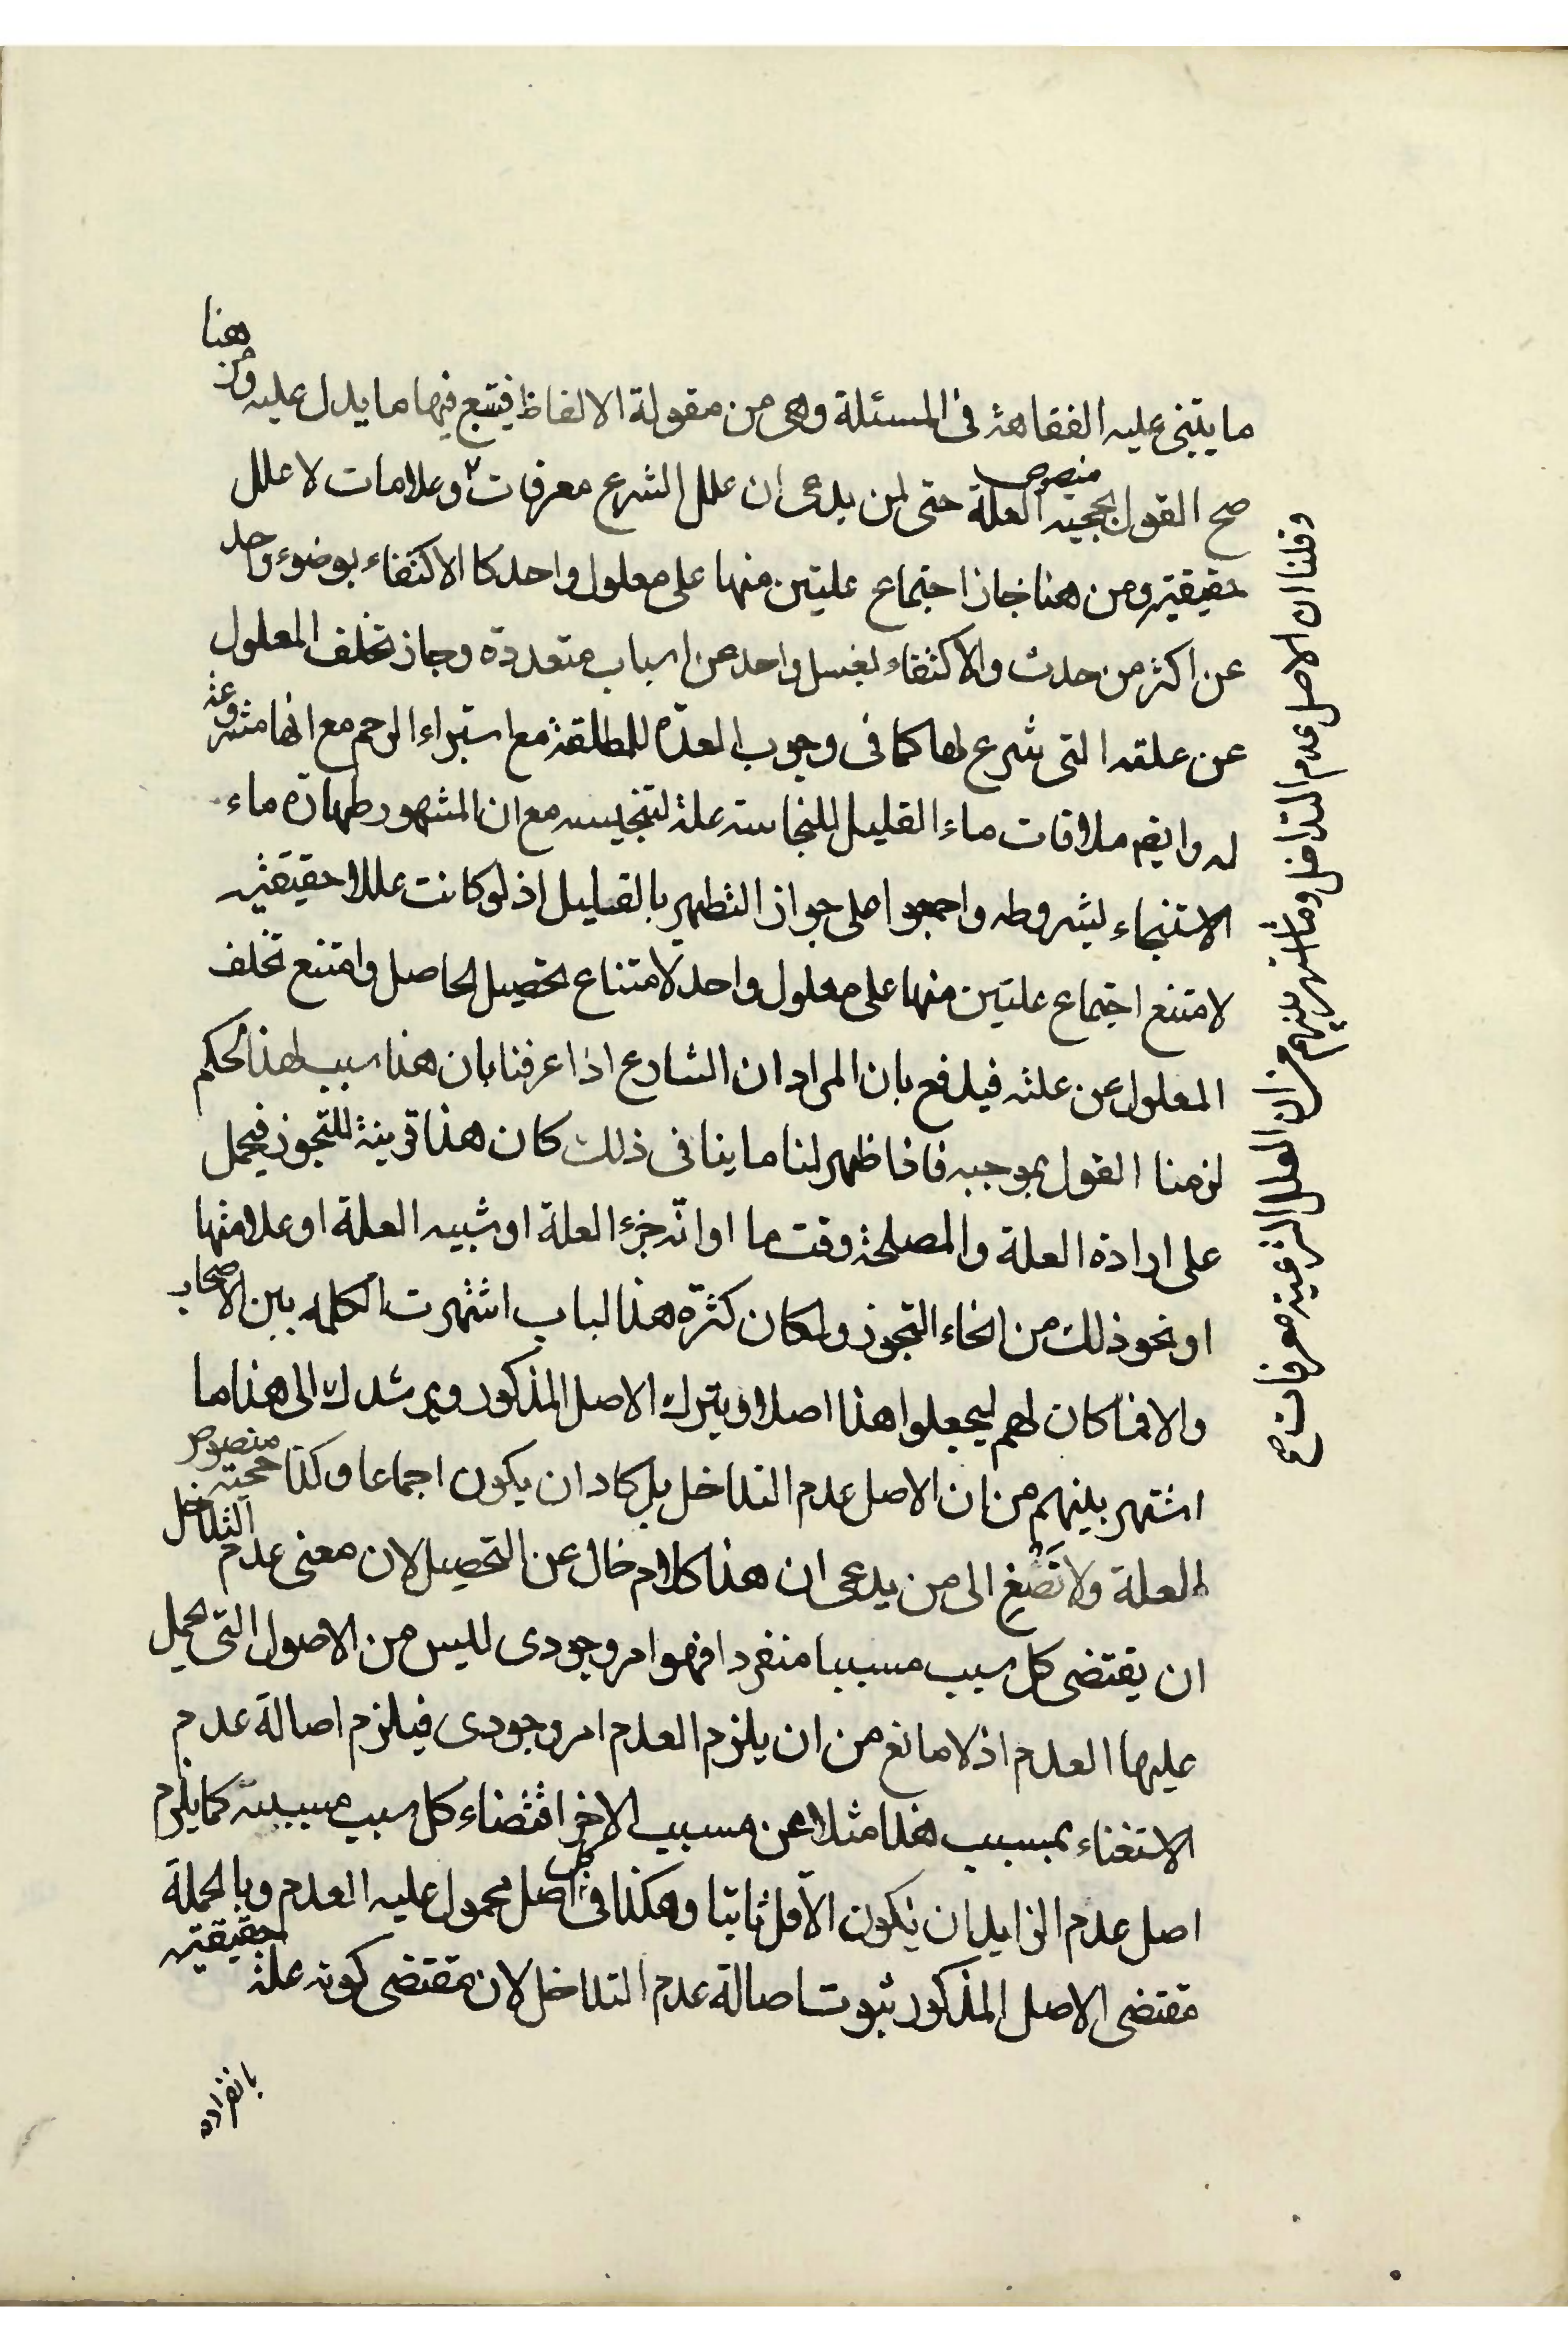 ما يبتنى عليه الفقاهة فى المسئلة وهى من مقولة الالفاظ فيتبع فيها ما يدل عليه ومن هنا
صح القول بحجيه منصوص العلة حتى لمن يدعى ان علل الشرع معرفات وعلامات لا علل
حقيقيه ومن هنا جاز اجتماع علتين منها على معلول واحد كا الاكتفاء بوضوء واحد
عن اكثر من حدث والاكتفاء بغسل واحد عن اسباب متعددة وجاز تخلف المعلول
عن علته التى شرع لها كما فى وجوب العدّة للمطلقة مع استبراء الرحم مع انها مشروعة
له وايضم ملاقات ماء القليل للنجاسة علة لتنجيسه مع ان المشهور طهارة ماء
الاستنجاء بشروطه واجمعوا على جواز التطهير بالقليل اذ لو كانت عللا حقيقيه
لامتنع اجتماع علتين منها على معلول واحد لامتناع تحصيل الحاصل وامتنع تخلف
المعلول عن علته فيدفع بان المراد ان الشارع اذا عرفنا بان هذا سبب لهذا الحكم
لزمنا القول بموجبه فاذا ظهر لنا ما ينافى ذلك كان هذا قرينة للتجوز فيحمل
على ارادة العلة والمصلحة وقت ما او انّه جزء العلة او شبيه العلة او علامتها
او نحو ذلك من انحاء التجوز ولمكان كثرّة هذا لباب اشتهرت الكلمه بين الاصحاب
والا فما كان لهم ليجعلوا هذا اصلا ويترك الاصل المذكور ويرشدك الى هذا ما
اشتهر بينهم من ان الاصل عدم التداخل بل كاد ان يكون اجماعا وكذا حجيته منصوص
العلة ولا تَصْغِ الى من يدعى ان هذا كلام خال عن التحصيل لان معنى عدم التداخل
ان يقتضى كل سبب مسببا منفردا فهو امر وجودى لليس من الاصول التى يحمل
عليها العدم اذ لا مانع من ان يلزم العدم امر وجودى فيلزم اصالة عدم
الاستغناء بمسبب هذا مثلا عن مسبب الاخر اقتضاء كل سبب مسببه كما يلزم
اصل عدم الزايد ان يكون الاقل ثابتا وهكذا فى كل اصل محمول عليه العدم وبالجملة
مقتضى الاصل المذكور ثبوت اصالة عدم التداخل لان مقتضى كونه علة حقيقيه
بانفراده
وقلنا ان الاصل عدم التداخل وما اشتهر بينهم من ان العلل الشرعية معرفات صح